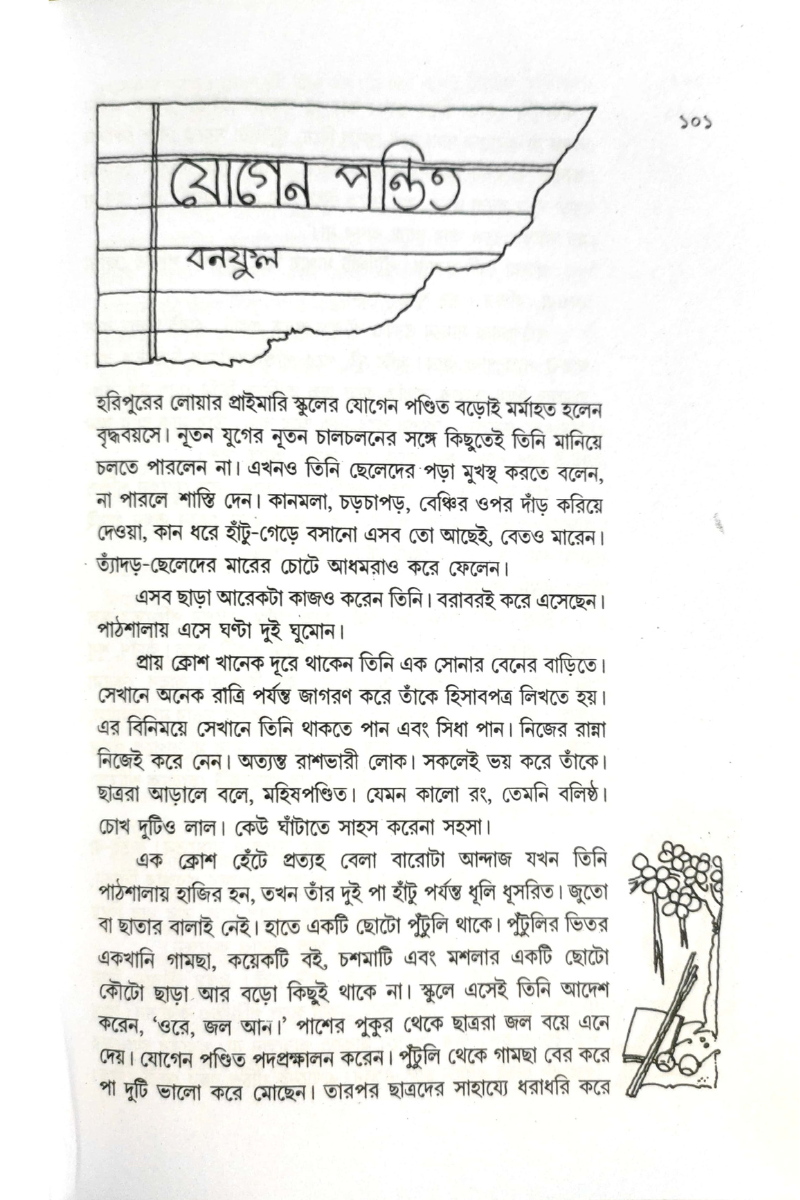 ১০১
যোগেন পন্ডিত
বনফুল
হরিপুরের লোয়ার প্রাইমারি স্কুলের যোগেন পণ্ডিত বড়োই মর্মাহত হলেন
বৃদ্ধবয়সে। নূতন যুগের নূতন চালচলনের সঙ্গে কিছুতেই তিনি মানিয়ে
চলতে পারলেন না। এখনও তিনি ছেলেদের পড়া মুখস্থ করতে বলেন,
না পারলে শাস্তি দেন। কানমলা, চড়চাপড়, বেঞ্চির ওপর দাঁড় করিয়ে
দেওয়া, কান ধরে হাঁটু-গেড়ে বসানো এসব তো আছেই, বেতও মারেন।
ত্যাঁদড়-ছেলেদের মারের চোটে আধমরাও করে ফেলেন।
এসব ছাড়া আরেকটা কাজও করেন তিনি। বরাবরই করে এসেছেন।
পাঠশালায় এসে ঘণ্টা দুই ঘুমোন।
প্রায় ক্রোশ খানেক দূরে থাকেন তিনি এক সোনার বেনের বাড়িতে।
সেখানে অনেক রাত্রি পর্যন্ত জাগরণ করে তাঁকে হিসাবপত্র লিখতে হয়।
এর বিনিময়ে সেখানে তিনি থাকতে পান এবং সিধা পান। নিজের রান্না
নিজেই করে নেন। অত্যন্ত রাশভারী লোক। সকলেই ভয় করে তাঁকে।
ছাত্ররা আড়ালে বলে, মহিষপণ্ডিত। যেমন কালো রং, তেমনি বলিষ্ঠ।
চোখ দুটিও লাল। কেউ ঘাঁটাতে সাহস করেনা সহসা।
এক ক্রোশ হেঁটে প্রত্যহ বেলা বারোটা আন্দাজ যখন তিনি
পাঠশালায় হাজির হন, তখন তাঁর দুই পা হাঁটু পর্যন্ত ধূলি ধূসরিত। জুতো
বা ছাতার বালাই নেই। হাতে একটি ছোটো পুঁটুলি থাকে। পুঁটুলির ভিতর
একখানি গামছা, কয়েকটি বই, চশমাটি এবং মশলার একটি ছোটো
কৌটো ছাড়া আর বড়ো কিছুই থাকে না। স্কুলে এসেই তিনি আদেশ
করেন, ‘ওরে, জল আন।’ পাশের পুকুর থেকে ছাত্ররা জল বয়ে এনে
দেয়। যোগেন পণ্ডিত পদপ্রক্ষালন করেন। পুঁটুলি থেকে গামছা বের করে
পা দুটি ভালো করে মোছেন। তারপর ছাত্রদের সাহায্যে ধরাধরি করে